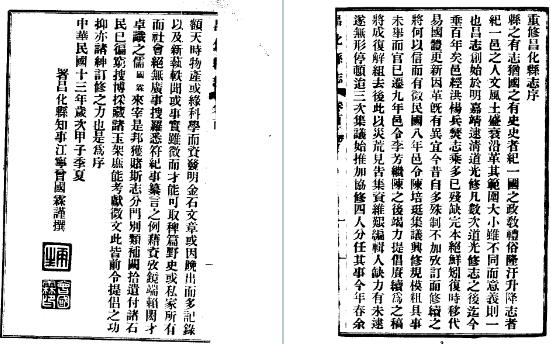 重修昌化縣志序
縣之有志猶國之有史史者紀一國之政敎禮俗隆汙升降志者
紀一邑之人文風土盛衰沿革其範圍大小雖不同而意義則一
也昌志創始於明嘉靖逮清道光修凡數次道光修志之後迄今
垂百年矣邑經洪楊兵燹志乘多已殘缺完本絕鮮矧復時移代
易國體更新因革旣有異宜今昔自多殊制不加攷訂而修續之
將何以信而有徵民國八年邑令陳培珽集議興修規模粗具事
未舉而官已遷九年邑令李芳繼陳之後竭力提倡賡續爲之稿
將成復解組去後此以災荒見告集資維艱編輯人缺力有未逮
遂無形停頓迨三次集議始推加協修四人分任其事今年春余
額天時物產或緣科學而資發明金石文章或因晚出而多記錄
以及新蓺軼聞或事實雖微而才能可取稗篇野史或私家所有
而社會絕無廣事搜羅悉符紀事纂言之例藉資攷鏡端賴閎才
卓識之儒國霖來宰是邦獲睹斯志分門別類補闕拾遺付諸石
民已徧窮搜博採藏諸玉架庶能考獻徵文此皆前令提倡之功
抑亦諸紳訂修之力也是爲序
中華民國十三年歲次甲子季夏
署昌化縣知事江寧曾國霖謹撰